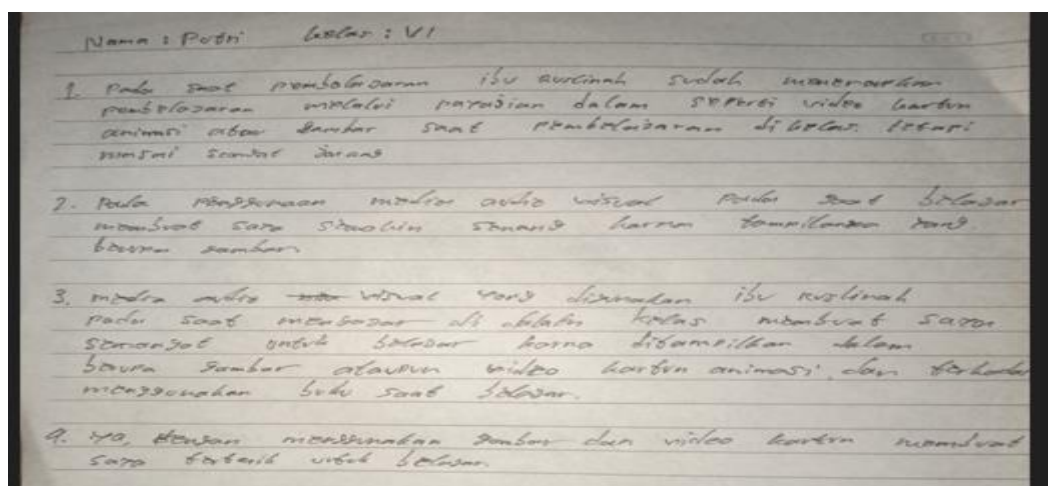 Nama : Putri kelas : VI
1. Pada saat pembelajaran ibu ruslinah sudah menerapkan
pembelajaran melalui dalam seperti video kartun
animasi atau gambar saat pembelajaran di kelas. tetapi
sangat jarang
2. Pada penggunaan media audio visual pada saat belajar
membuat saya senang karna tampilannya yang
berupa gambar
3. media audio visual yang digunakan ibu ruslinah
pada saat mengajar di dalam kelas membuat saya
semangat untuk belajar karna ditampilkan dalam
berupa gambar ataupun video kartun animasi, dan terkadang
menggunakan buku saat belajar.
4. ya, dengan menggunakan gambar dan video kartun membuat
saya tertarik untuk belajar.